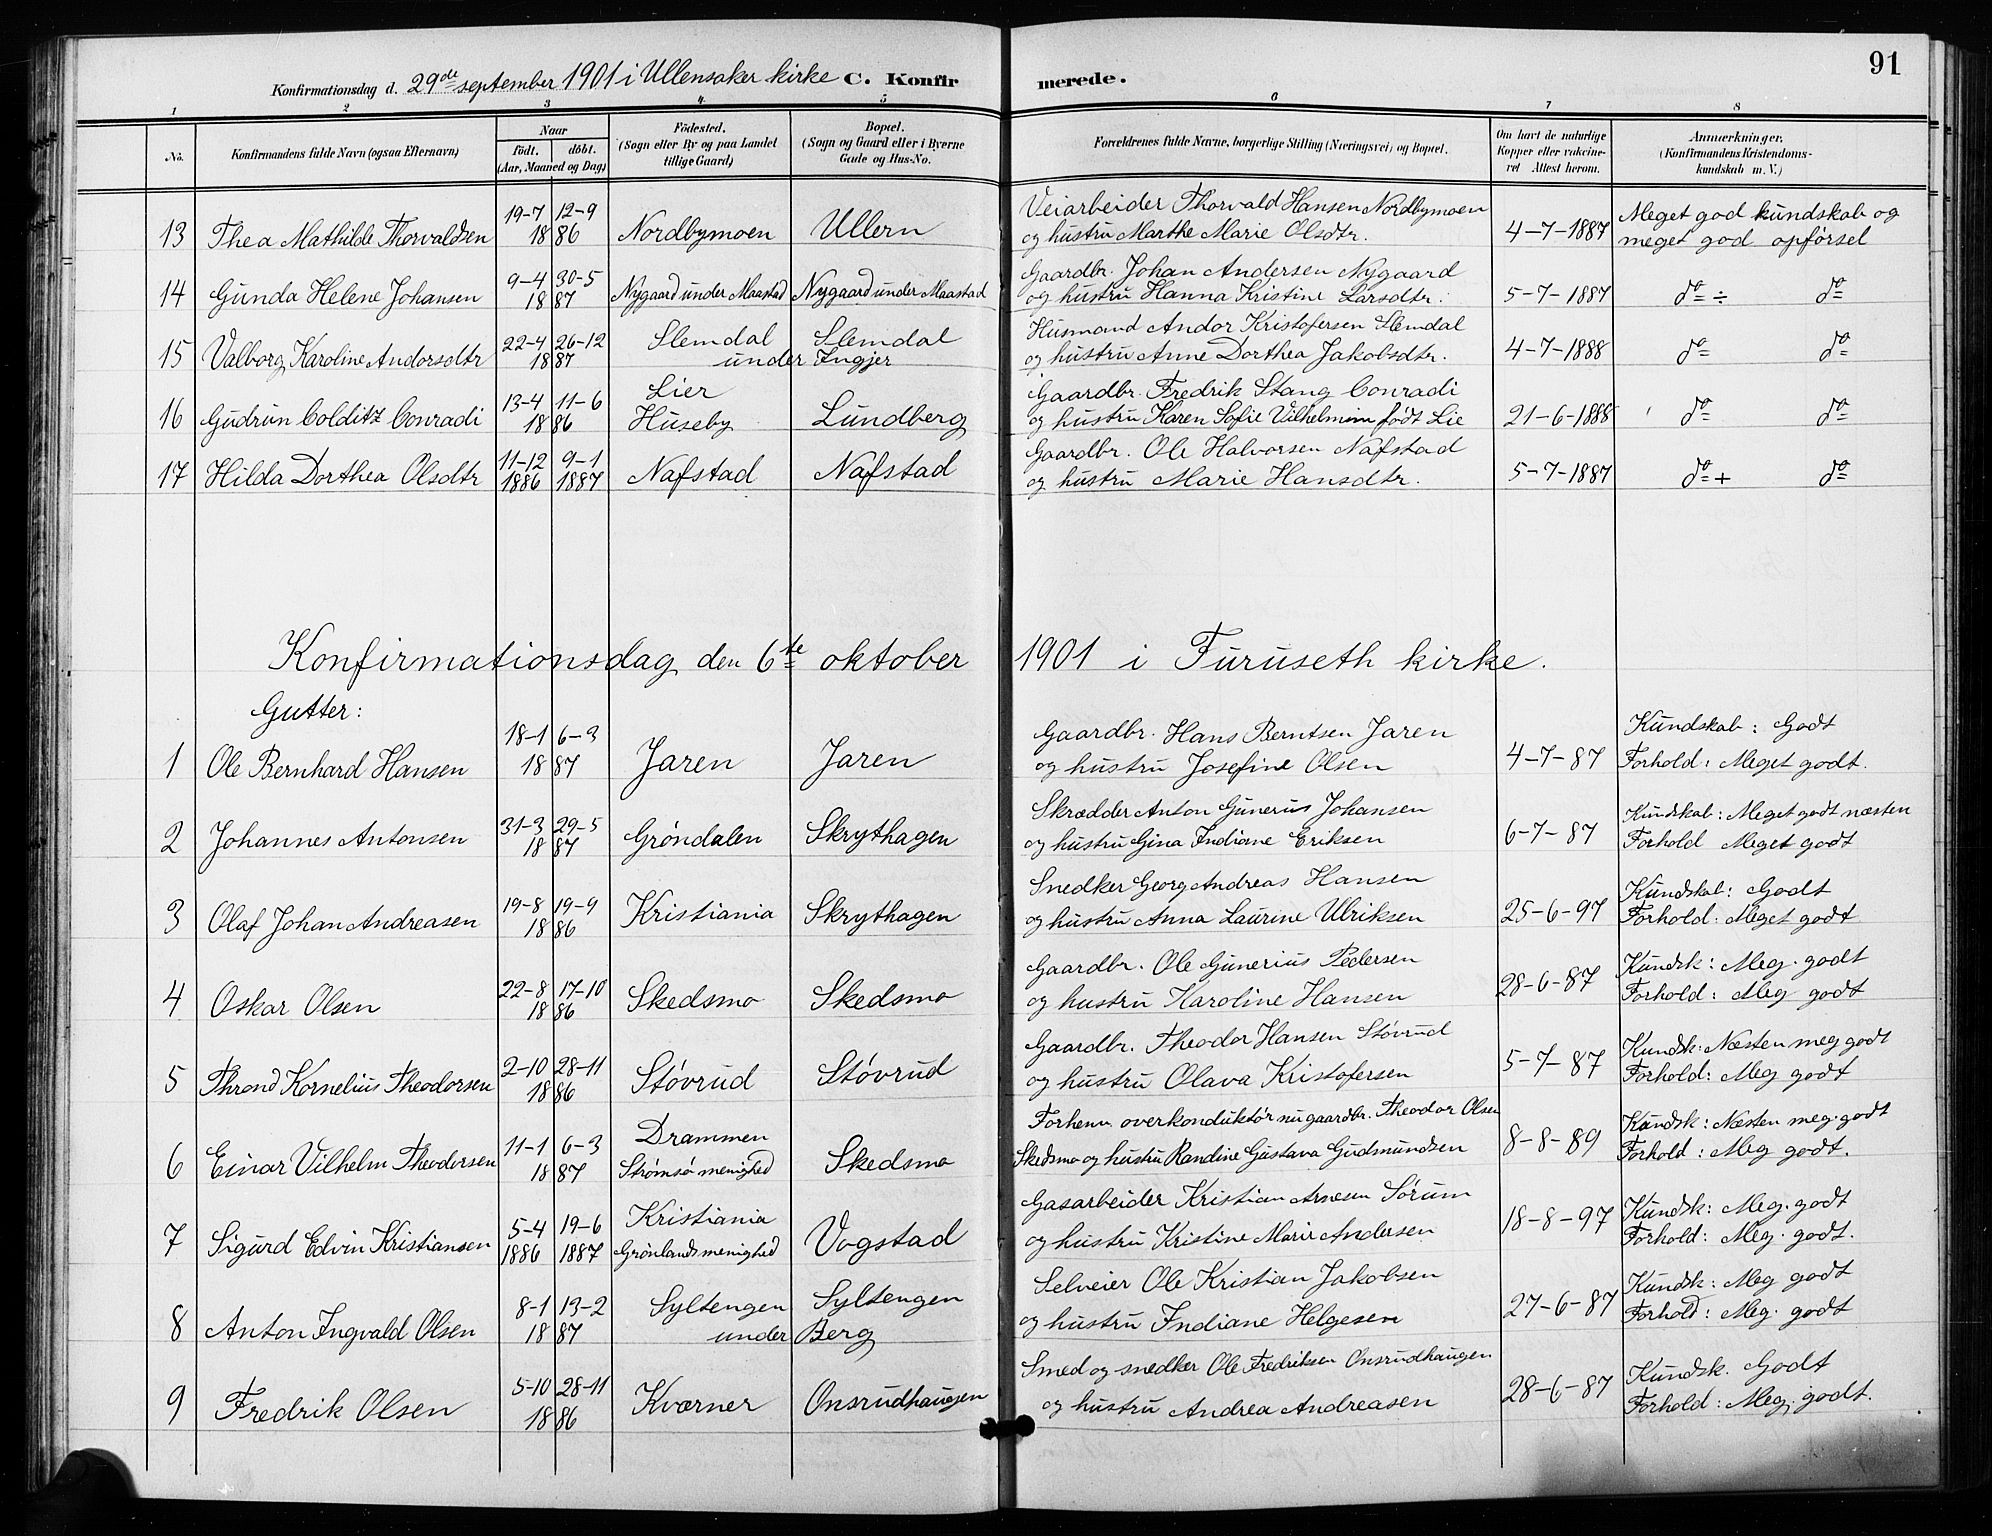 91
Konfirmationsdag d. 29de september 1901 i Ullensaker kirke C. Konfirmerede.
1 2 3 4 5 6 7 8
No. Konfirmandens fulde Navn (ogsaa Efternavn) Naar født. døbt. (Aar, Maaned og Dag) Fødested. (Sogn eller By og paa Landet tillige Gaard) Bopæl. (Sogn og Gaard eller i Byerne Gade og Hus-No. Forældrenes fulde Navne, borgerlige Stilling (Næringsvei) og Bopæl. Om havt de naturlige Kopper eller vakcineret Attest herom. Anmærkninger. (Konfirmandens Kristendomskundskab m. V.)
13 Thea Mathilde Thorvaldsen 19-7 12-9 1886 Nordbymoen Ullern Veiarbeider Thorvald Hansen Nordbymoen og hustru Marthe Marie Olsdtr. 4-7-1887 Meget god kundskab og meget god opførsel
14 Gunda Helene Johansen 9-4 30-5 1887 Nygaard under Maastad Nygaard under Maastad Gaardbr. Johan Andersen Nygaard og hustru Hanna Kristine Larsdtr. 5-7-1887 do ÷ do
15 Valborg Karoline Andorsdtr 22-4 26-12 1887 Slemdal Slemdal under Ingjer Husmand Andor Kristofersen Slemdal og hustru Anne Dorthea Jakobsdtr. 4-7-1888 do do
16 Gudrun Colditz Conradi 13-4 11-6 1886 Lier Huseby Lundberg Gaardbr. Fredrik Stang Conradi og hustru Karen Sofie Vilhelmine født Lie 21-6-1888 do do
17 Hilda Dorthea Olsdtr 11-12 1886 9-1 1887 Nafstad Nafstad Gaardbr. Ole Halvorsen Nafstad og hustru Marie Hansdtr. 5-7-1887 do + do
Konfirmationsdag den 6te oktober 1901 i Furuseth kirke.
Gutter:
1 Ole Bernhard Hansen 18-1 6-3 1887 Jaren Jaren Gaardbr. Hans Berntsen Jaren og hustru Josefine Olsen 4-7-87 Kundskab: Godt Forhold: Meget godt.
2 Johannes Antonsen 31-3 29-5 1887 Grøndalen Skrythagen Skrædder Anton Gunerius Johansen og hustru Gina Indiane Eriksen 6-7-87 Kundskab: Meget godt næsten Forhold Meget godt
3 Olaf Johan Andreasen 19-8 19-9 1886 Kristiania Skrythagen Snedker Georg Andreas Hansen og hustru Anna Laurine Ulriksen 25-6-97 Kundskab: Godt Forhold: Meget godt
4 Oskar Olsen 22-8 17-10 1886 Skedsmo Skedsmo Gaardbr. Ole Gunerius Pedersen og hustru Karoline Hansen 28-6-87 Kundsk: Meg. godt Forhold: Meg godt
5 Thrond Kornelius Theodorsen 2-10 28-11 1886 Støvrud Støvrud Gaardbr. Theodor Hansen Støvrud og hustru Olava Kristofersen 5-7-87 Kundsk: Næsten meg godt Forhold: Meg godt
6 Einar Vilhelm Theodorsen 11-1 6-3 1887 Drammen Strømsø menighed Skedsmo Forhenv. overkonduktør nu gaardbr. Theodor Olsen Skedsmo og hustru Randine Gustava Gudmundsen 8-8-89 Kundsk: Næsten meg. godt Forhold: Meg godt.
7 Sigurd Edvin Kristiansen 5-4 1886 19-6 1887 Kristiania Grønlands menighed Vogstad Gasarbeider Kristian Arnesen Sørum og hustru Kristine Marie Andersen 18-8-97 Kundsk: Meg. godt Forhold: Meg. godt.
8 Anton Ingvald Olsen 8-1 13-2 1887 Syltengen Syltengen under Berg Selveier Ole Kristian Jakobsen og hustru Indiane Helgesen 27-6-87 Kundsk: Meg godt Forhold: Meg. godt
9 Fredrik Olsen 5-10 28-11 1886 Kværner Onsrudhaugen Smed og snedker Ole Fredriksen Onsrudhaugen og hustru Andrea Andreasen 28-6-87 Kundsk. Godt Forhold: Meg. godt.